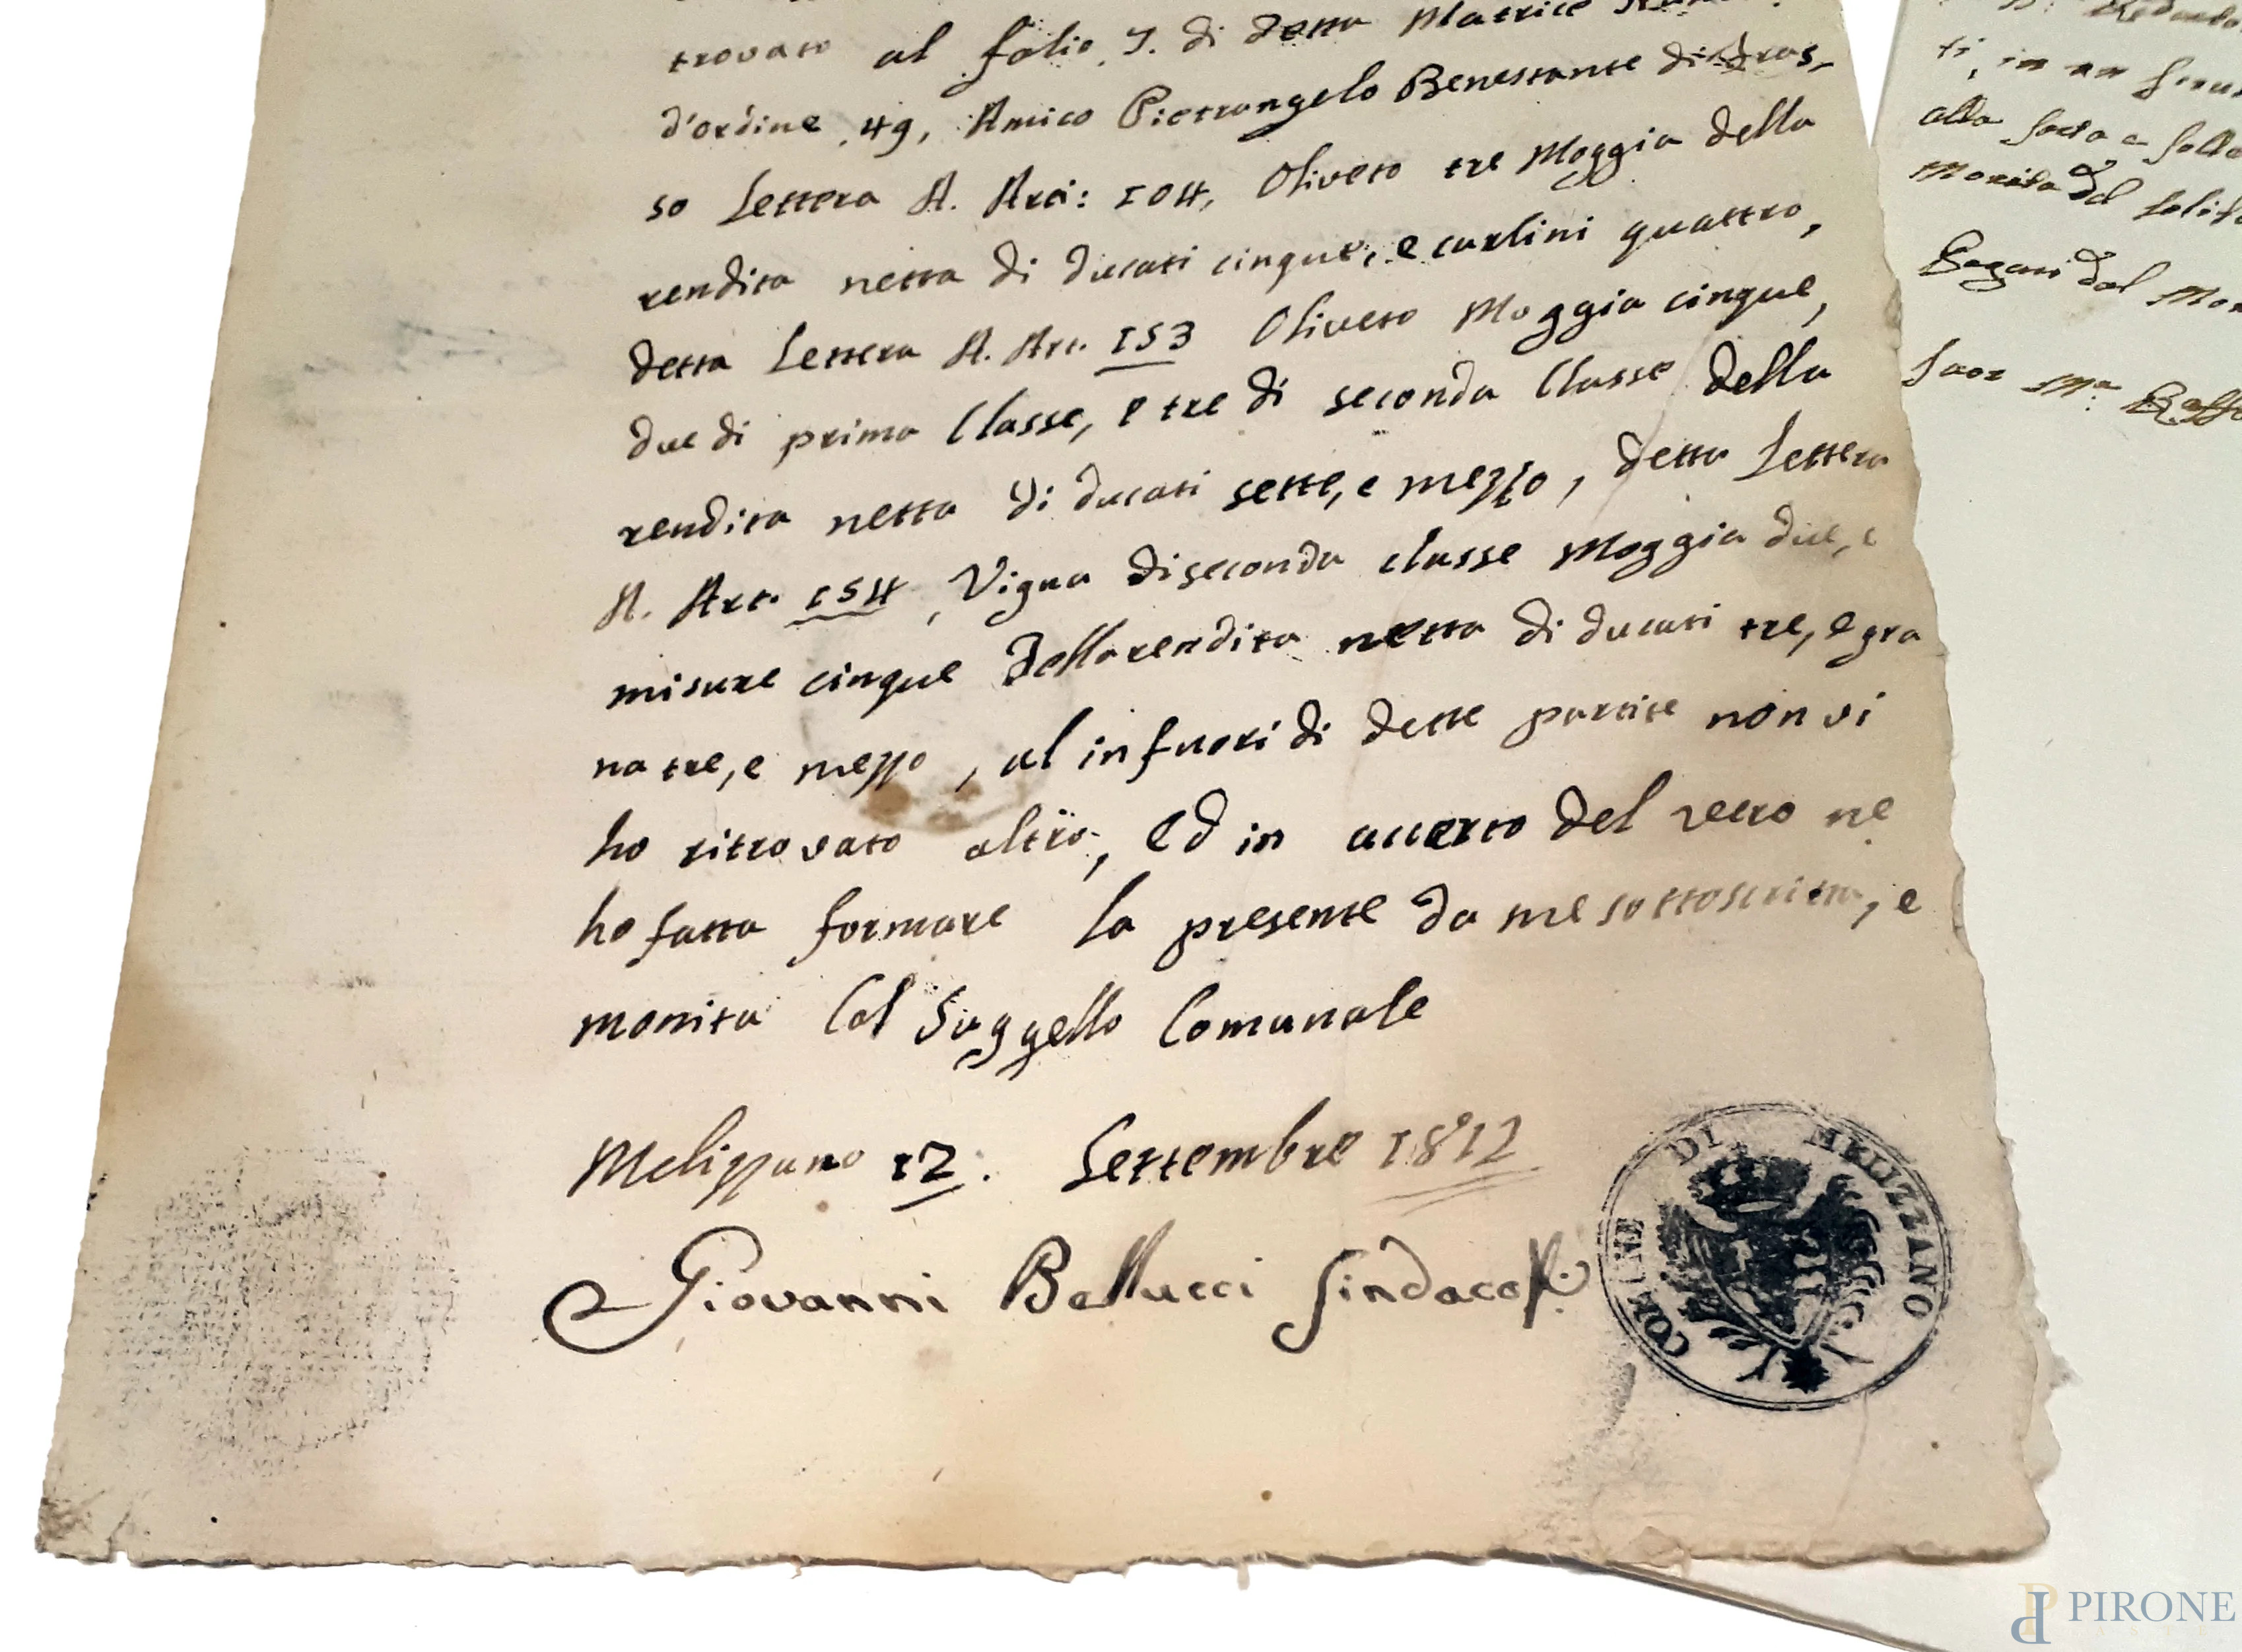 trovato al folio 7. di detta Matrice
d'ordine 49, Amico Pietrangelo Benestante di
so Lettera A. Art: 104, Oliveto tre Moggia della
rendita netta di ducati cinque, e carlini quattro,
detta Lettera A. Art. 153 Oliveto Moggia cinque,
due di prima Classe, e tre di seconda Classe della
rendita netta di ducati sette, e mezzo, detta Lettera
A. Art. 154, Vigna di seconda classe Moggia due, e
misure cinque della rendita netta di ducati tre, e gra
na tre, e mezzo, al infuori di dette partite non vi
ho ritrovato altro, ed in accerto del vero ne
ho fatta formare la presente da me sottoscritta, e
monita Col Suggello Comunale
Melizzano 12. Settembre 1812
Giovanni Bellucci Sindaco
COMUNE DI MELIZZANO
alla
Pagari dal
Suor M.a
PIRONE